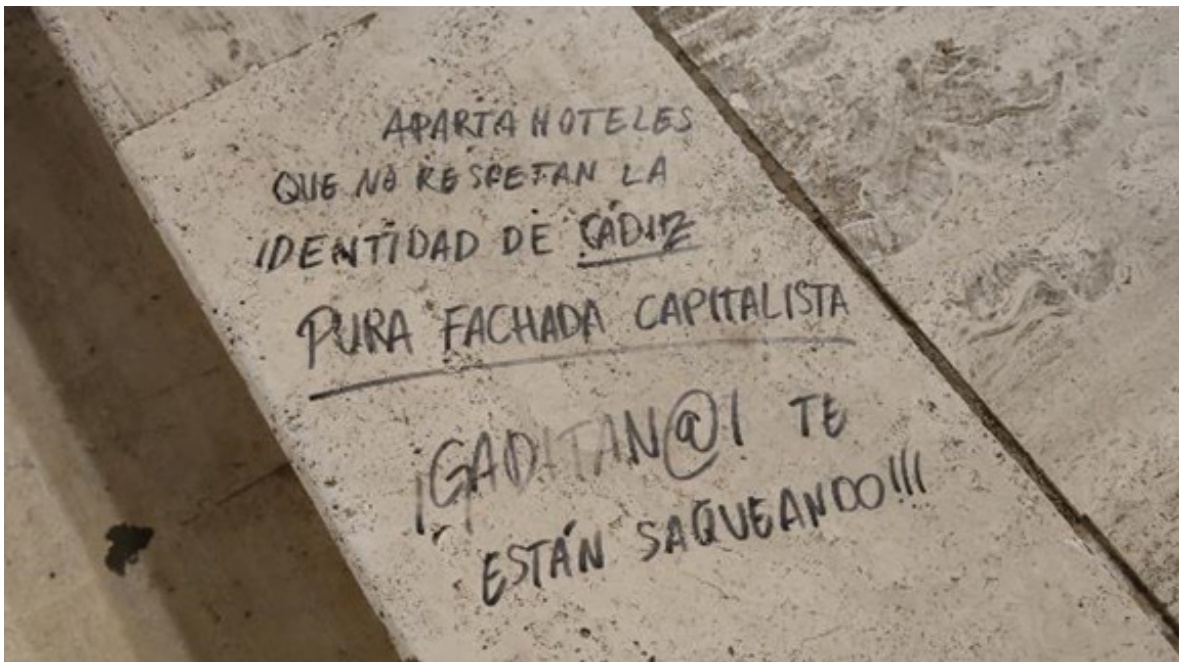 APARTA HOTELES
QUE NO RESPETAN LA
IDENTIDAD DE CÁDIZ
PURA FACHADA CAPITALISTA
¡GADITAN@! TE
ESTÁN SAQUEANDO!!!